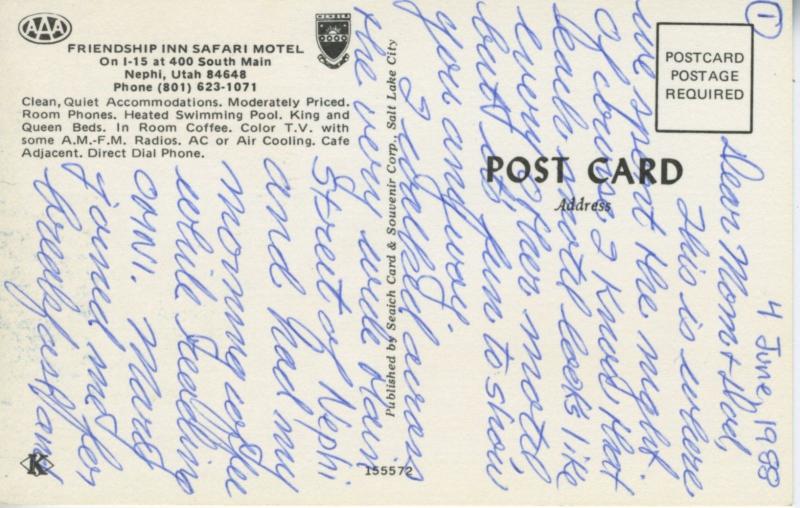 AAA
FRIENDSHIP INN SAFARI MOTEL
On I-15 at 400 South Main
Nephi, Utah 84648
Phone (801) 623-1071
Clean, Quiet Accommodations. Moderately Priced.
Room Phones. Heated Swimming Pool. King and
Queen Beds. In Room Coffee. Color T.V. with
some A.M.-F.M. Radios. AC or Air Cooling. Cafe
Adjacent. Direct Dial Phone.
MEMBER
POSTCARD
POSTAGE
REQUIRED
POST CARD
Address
Published by Seaich Card & Souvenir Corp., Salt Lake City
155572
K
1
4 June, 1988
Dear Mom + Dad,
This is where
we spent the night.
Of course I know that
each motel looks like
every other motel
but it's fun to show
you anyway.
I walked across
the very wide Main
Street of Nephi
and had my
morning coffee
while reading
OMNI. Marg
joined me for
breakfast and